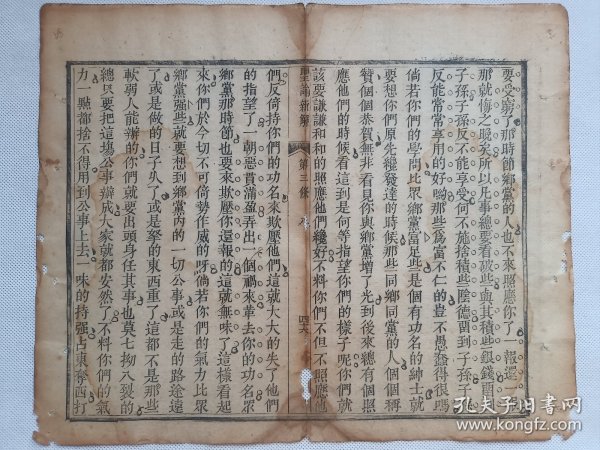 要受窮了那時節鄉黨的人也不來照應你了一報還一報
那就悔之晚矣所以凡事總要看破些與其積些銀錢留與
子孫子孫反不能享受何不施捨積些陰德留到子孫子孫
反能常常享用的好喲那些爲富不仁的豈不愚蠢得很嗎
倘若你們的學問比眾鄉黨富足些已是個有功名的紳士就
要想你們原先纔發達的時候那些同鄉同黨的人個個稱
贊個個恭賀無非看見你與鄉黨增了光到後來總有個照
應他們的時候看這到是何等指望你們的樣子呢你們就
該要謙謙和和的照應他們纔好不料你們不但不照應他
聖諭
第二條
們反倚持你們的功名來欺壓他們這就大大的失了他們
的指望了一朝惡貫滿盈弄出一個禍來革去你的功名眾
鄉黨那時節也要來欺壓你還報的這就無味了這樣看起
來你們於今切不可倚勢作威的呀倘若你們的氣力比眾
鄉黨強些就要想到鄉黨內的一切公事或是走的路途遠
了或是做的日子久了或是拏的東西重了這都不是那些
軟弱人能辦的你們就要出頭身任其事也莫七拗八裂的
總只要把這場公事辦成大家就都安然了不料你們的氣
力一點都捨不得用到公事上去一味的持強占東奪西打
孔夫子旧书网
www.kongfz.com